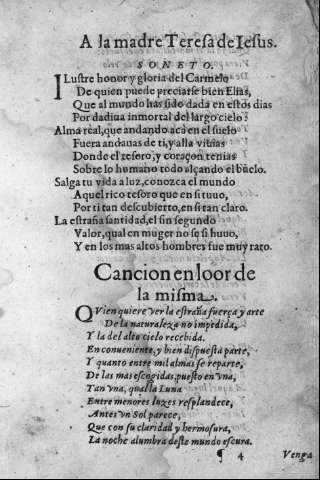 A la madre Teresa de Iesus.
SONETO.
ILustre honor y gloria del Carmelo
De quien puede preciarse bien Elias,
Que al mundo has sido dada en estos dias
Por dadiua inmortal del largo cielo:
Alma real, que andando acà en el suelo
Fuera andauas de ti, y alla viuias
Donde el tesoro, y coraçon tenias
Sobre lo humano todo alçando el buelo.
Salga tu vida a luz, conozca el mundo
Aquel rico tesoro que en si tuuo,
Por ti tan descubierto, en si tan claro.
La estraña santidad, el sin segundo
Valor, qual en muger no se si huuo,
Y en los mas altos hombres fue muy raro.
Cancion en loor de
la misma.
QVien quiere ver la estraña fuerça y arte
De la naturaleza no impedida,
Y la del alto cielo recebida.
En conueniente, y bien dispuesta parte,
Y quanto entre mil almas se reparte,
De las mas escogidas, puesto en vna,
Tan vna, qual la Luna
Entre menores luzes resplandece,
Antes vn Sol parece,
Que con su claridad y hermosura,
La noche alumbra deste mundo escura.
¶ 4 Venga